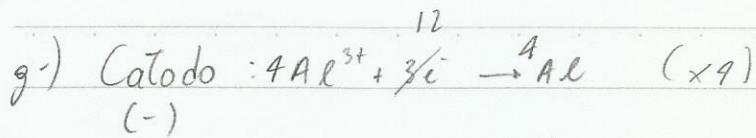 12
g-) Catodo : 4Al³⁺ + 3e⁻ → 4Al (x4)
(-)